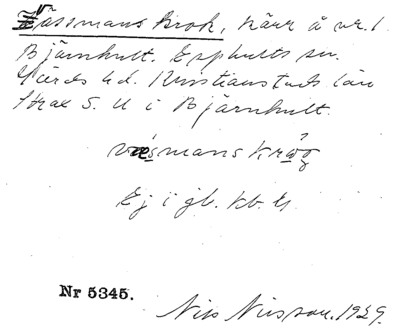 Vässmans Krok, Kärr å nr. 1
Bjärnhult. Esphults sn.
Gärds hd. Kristianstads län
Strax S. U i Bjärnhult.
væsmans krǫg
Ej i gl. kb. U
Nr 5345.
Nils Nilsson. 1929.